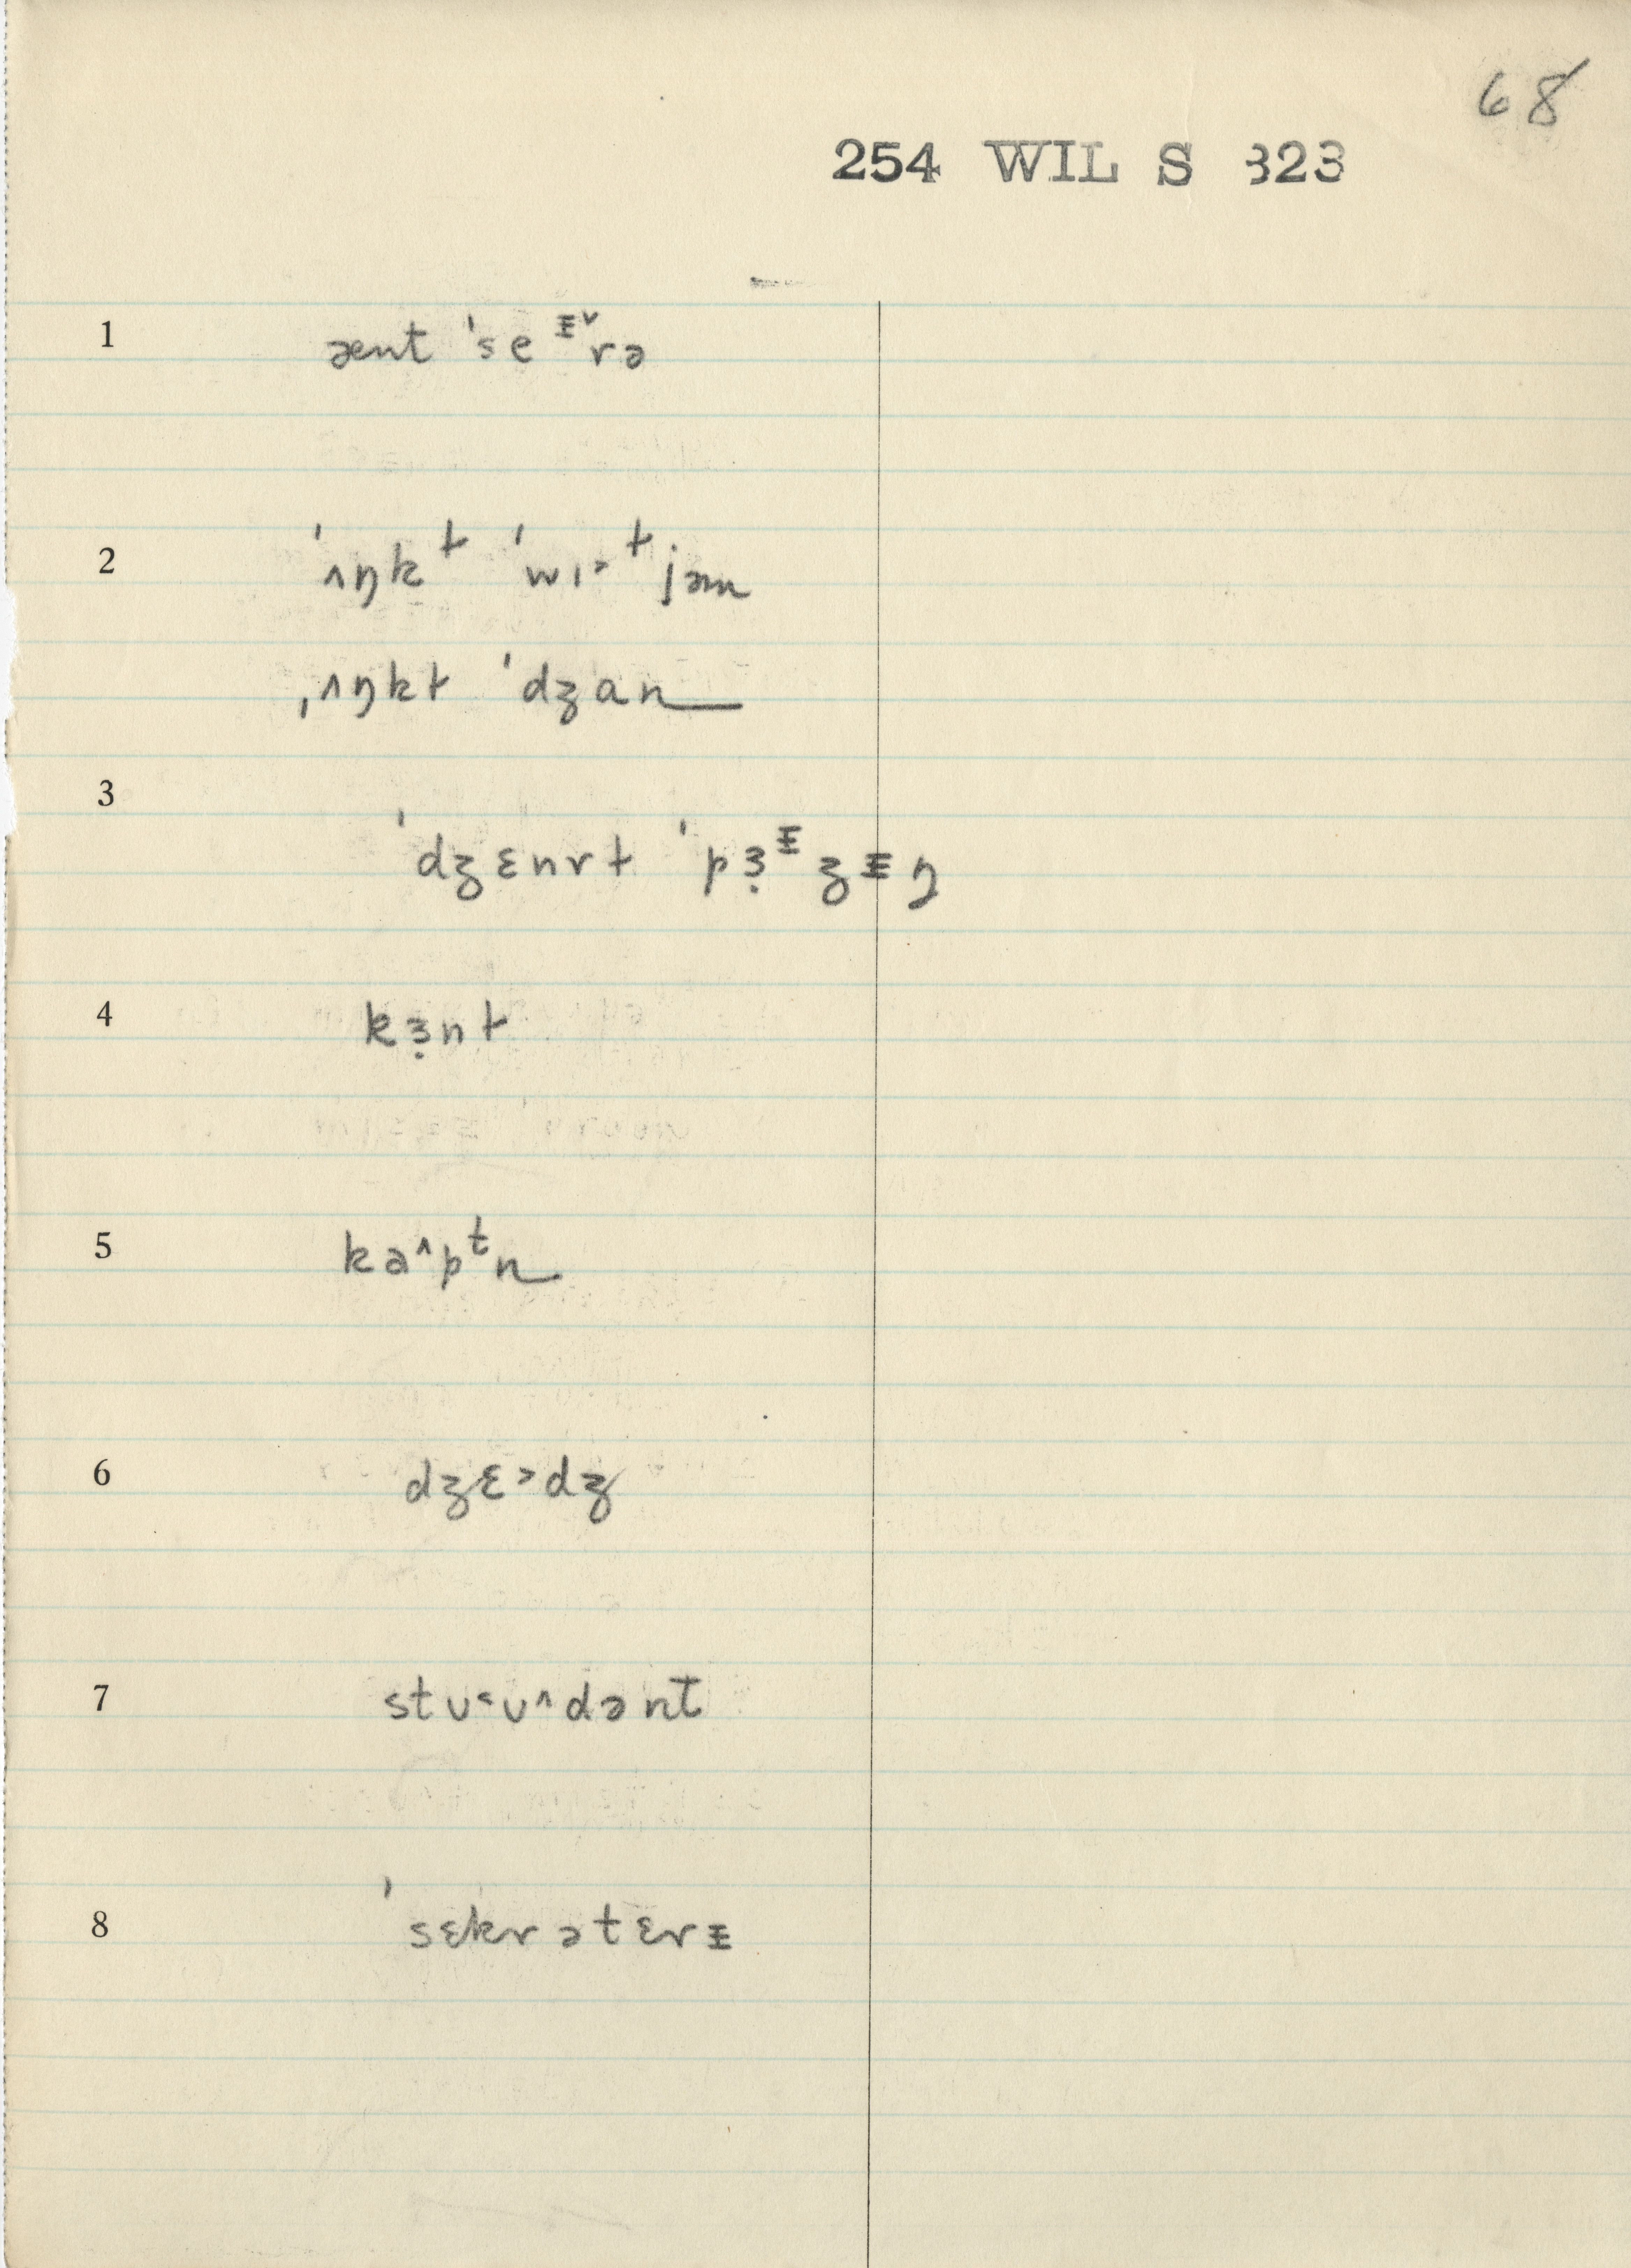 68
254 WIL S 323
1 ænt ˈse ᵻ˅rə
2 ˈʌŋkɫ ˈwɪ˃ɫjəm
ˌʌŋkɫ ˈdʒɑn
3 ˈdʒɛnrɫ ˈpɜ̣ᵻʒᵻŋ
4 kɜ̣nɫ
5 ka˄pᵗn
6 dʒɛ˃dʒ
7 stʊ˂ʊ˄dənt
8 ˈsɛkrətɛrᵻ